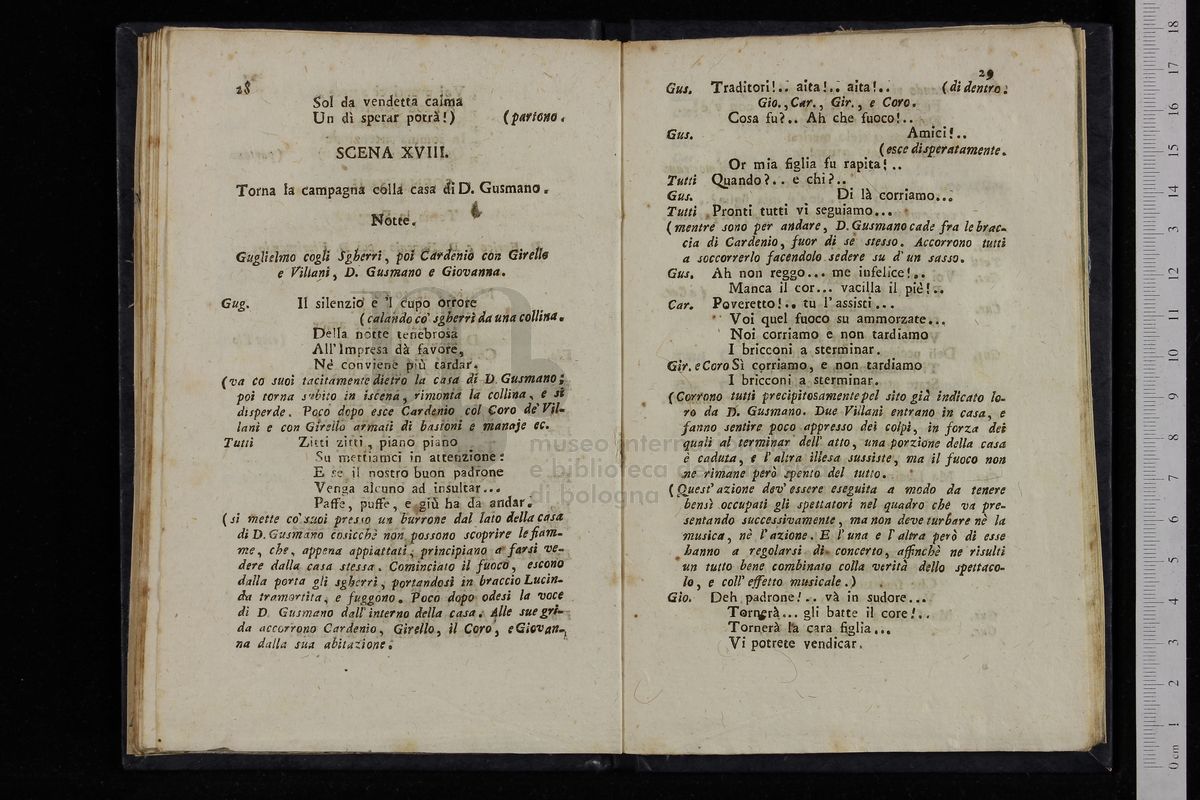 28
Sol da vendetta calma
Un dì sperar potrà!) (partono.
SCENA XVIII.
Torna la campagna colla casa di D. Gusmano.
Notte.
Guglielmo cogli Sgherri, poi Cardenio con Girello
e Villani, D. Gusmano e Giovanna.
Gug. Il silenzio e 'l cupo orrore
(calando co' sgherri da una collina.
Della notte tenebrosa
All'Impresa dà favore,
Nè conviene più tardar.
(va co suoi tacitamente dietro la casa di D. Gusmano;
poi torna subito in iscena, rimonta la collina, e si
disperde. Poco dopo esce Cardenio col Coro de' Vil-
lani e con Girello armati di bastoni e manaje ec.
Tutti Zitti zitti, piano piano
Su mettiamci in attenzione:
E se il nostro buon padrone
Venga alcuno ad insultar...
Paffe, puffe, e giù ha da andar.
(si mette co' suoi presso un burrone dal lato della casa
di D. Gusmano cosicchè non possono scoprire le fiam-
me, che, appena appiattati, principiano a farsi ve-
dere dalla casa stessa. Cominciato il fuoco, escono
dalla porta gli sgherri, portandosi in braccio Lucin-
da tramortita, e fuggono. Poco dopo odesi la voce
di D. Gusmano dall'interno della casa. Alle sue gri-
da accorrono Cardenio, Girello, il Coro, e Giovan-
na dalla sua abitazione.
29
Gus. Traditori!.. aita!.. aita!.. (di dentro.
Gio., Car., Gir., e Coro.
Cosa fu?.. Ah che fuoco!..
Gus. Amici!..
(esce disperatamente.
Or mia figlia fu rapita!..
Tutti Quando?.. e chi?..
Gus. Di là corriamo...
Tutti Pronti tutti vi seguiamo...
(mentre sono per andare, D. Gusmano cade fra le brac-
cia di Cardenio, fuor di se stesso. Accorrono tutti
a soccorrerlo facendolo sedere su d'un sasso.
Gus. Ah non reggo... me infelice!..
Manca il cor... vacilla il piè!..
Car. Poveretto!.. tu l'assisti...
Voi quel fuoco su ammorzate...
Noi corriamo e non tardiamo
I bricconi a sterminar.
Gir. e Coro Sì corriamo, e non tardiamo
I bricconi a sterminar.
(Corrono tutti precipitosamente pel sito già indicato lo-
ro da D. Gusmano. Due Villani entrano in casa, e
fanno sentire poco appresso dei colpi, in forza dei
quali al terminar dell'atto, una porzione della casa
è caduta, e l'altra illesa sussiste, ma il fuoco non
ne rimane però spento del tutto.
(Quest'azione dev'essere eseguita a modo da tenere
bensì occupati gli spettatori nel quadro che va pre-
sentando successivamente, ma non deve turbare nè la
musica, nè l'azione. E l'una e l'altra però di esse
hanno a regolarsi di concerto, affinchè ne risulti
un tutto bene combinato colla verità dello spettaco-
lo, e coll'effetto musicale.)
Gio. Deh padrone!.. và in sudore...
Tornerà... gli batte il core!..
Tornerà la cara figlia...
Vi potrete vendicar.
museo intern
e biblioteca d
di bologna
0 cm 1 2 3 4 5 6 7 8 9 10 11 12 13 14 15 16 17 18